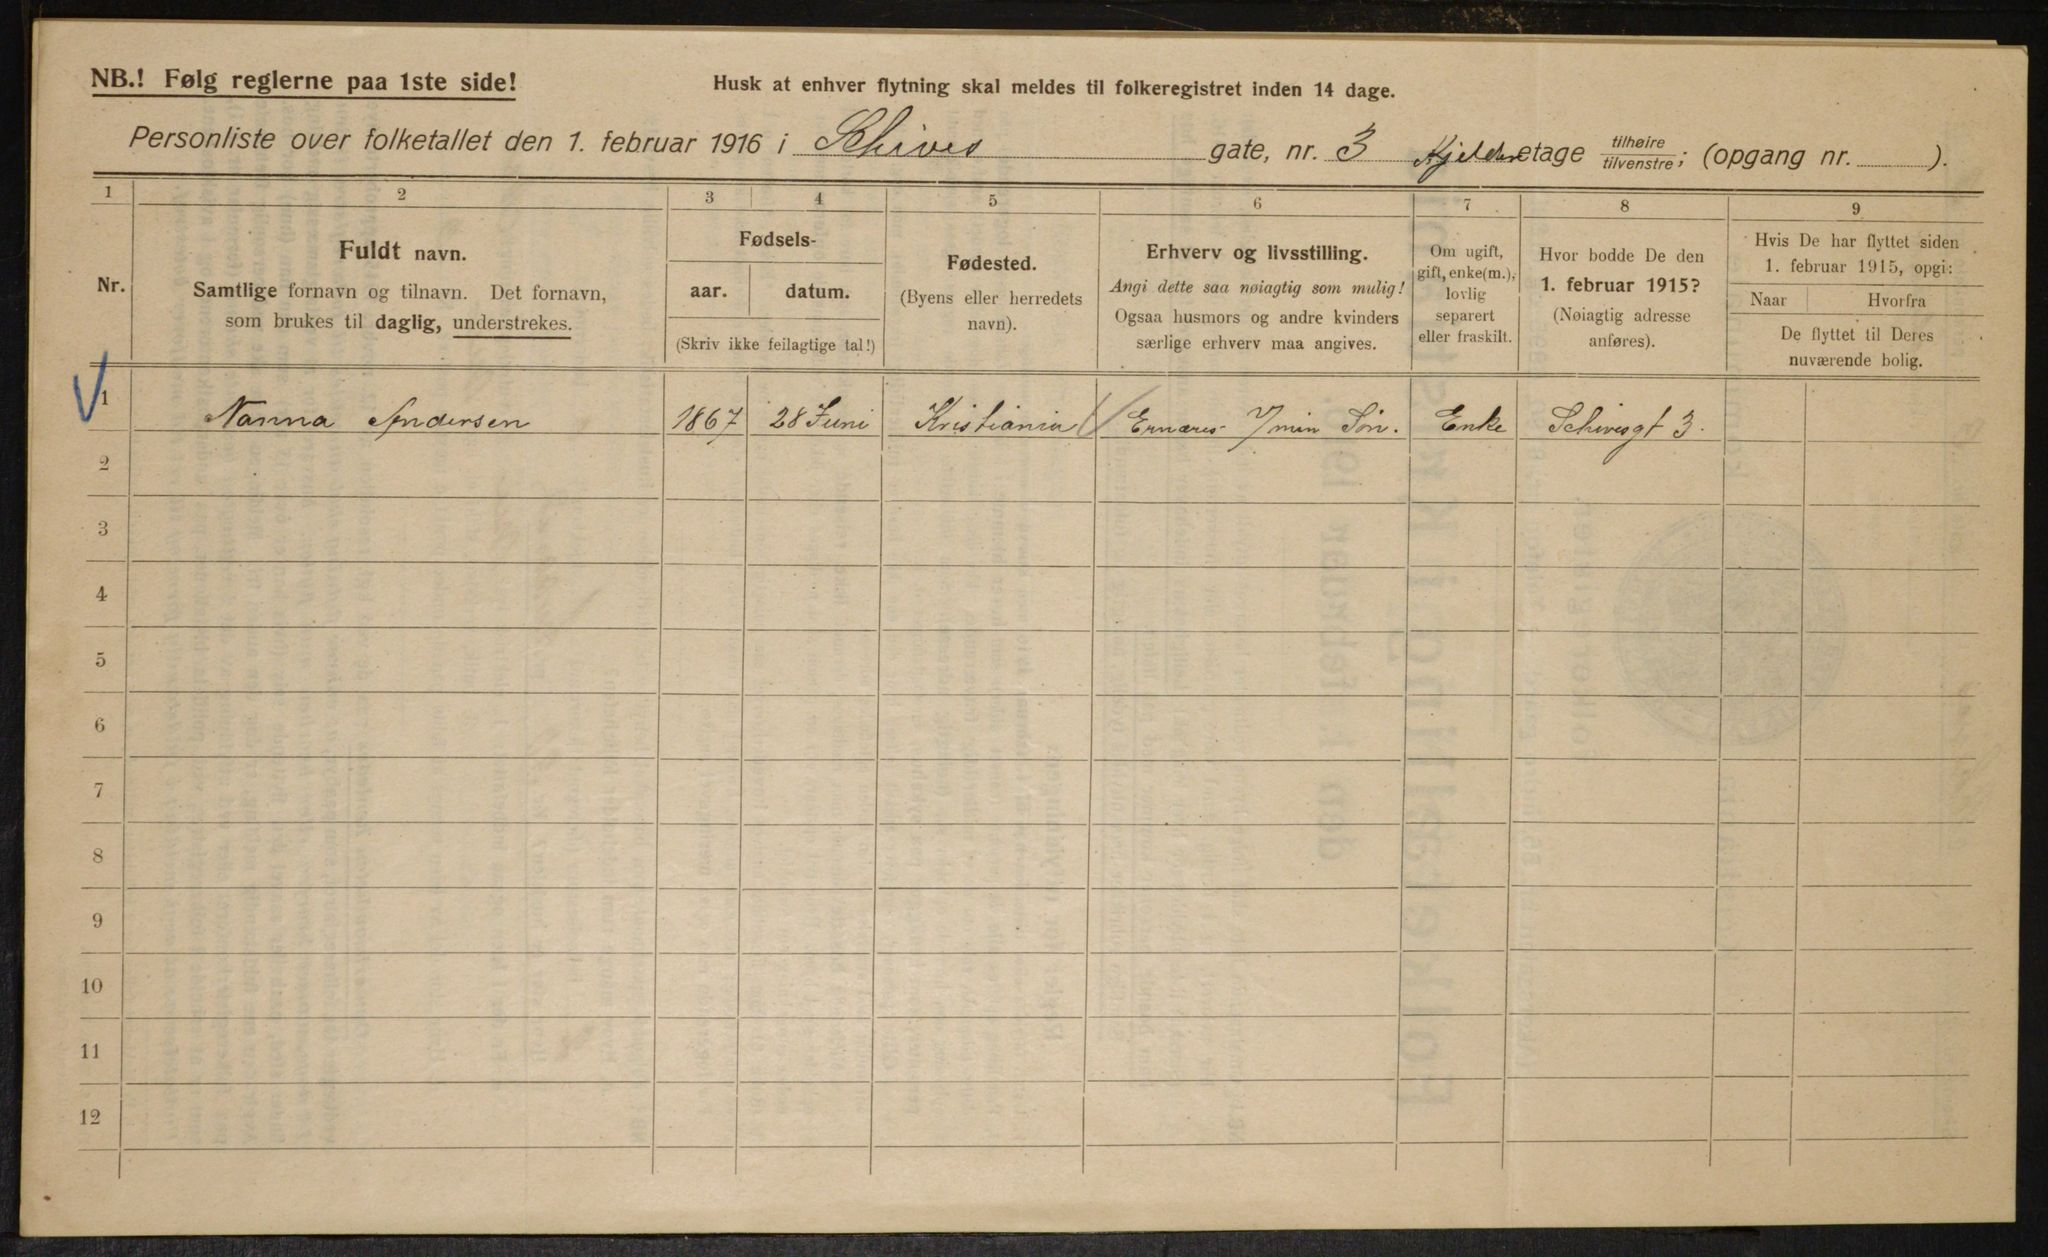 NB.! Følg reglerne paa 1ste side!
Husk at enhver flytning skal meldes til folkeregistret inden 14 dage.
Personliste over folketallet den 1. februar 1916 i Schives gate, nr. 3 Kjelder etage tilhøire tilvenstre; (opgang nr. ).
1 2 3 4 5 6 7 8 9
Nr.
Fuldt navn.
Samtlige fornavn og tilnavn. Det fornavn,
som brukes til daglig, understrekes.
Fødsels-
aar. datum.
(Skriv ikke feilagtige tal!)
Fødested.
(Byens eller herredets
navn).
Erhverv og livsstilling.
Angi dette saa nøiagtig som mulig!
Ogsaa husmors og andre kvinders
særlige erhverv maa angives.
Om ugift,
gift, enke(m.),
lovlig
separert
eller fraskilt.
Hvor bodde De den
1. februar 1915?
(Nøiagtig adresse
anføres).
Hvis De har flyttet siden
1. februar 1915, opgi:
Naar Hvorfra
De flyttet til Deres
nuværende bolig.
1 Nanna Andersen 1867 28 Juni Kristiania Ernæres min Søn. Enke Schivesgt 3.
2
3
4
5
6
7
8
9
10
11
12